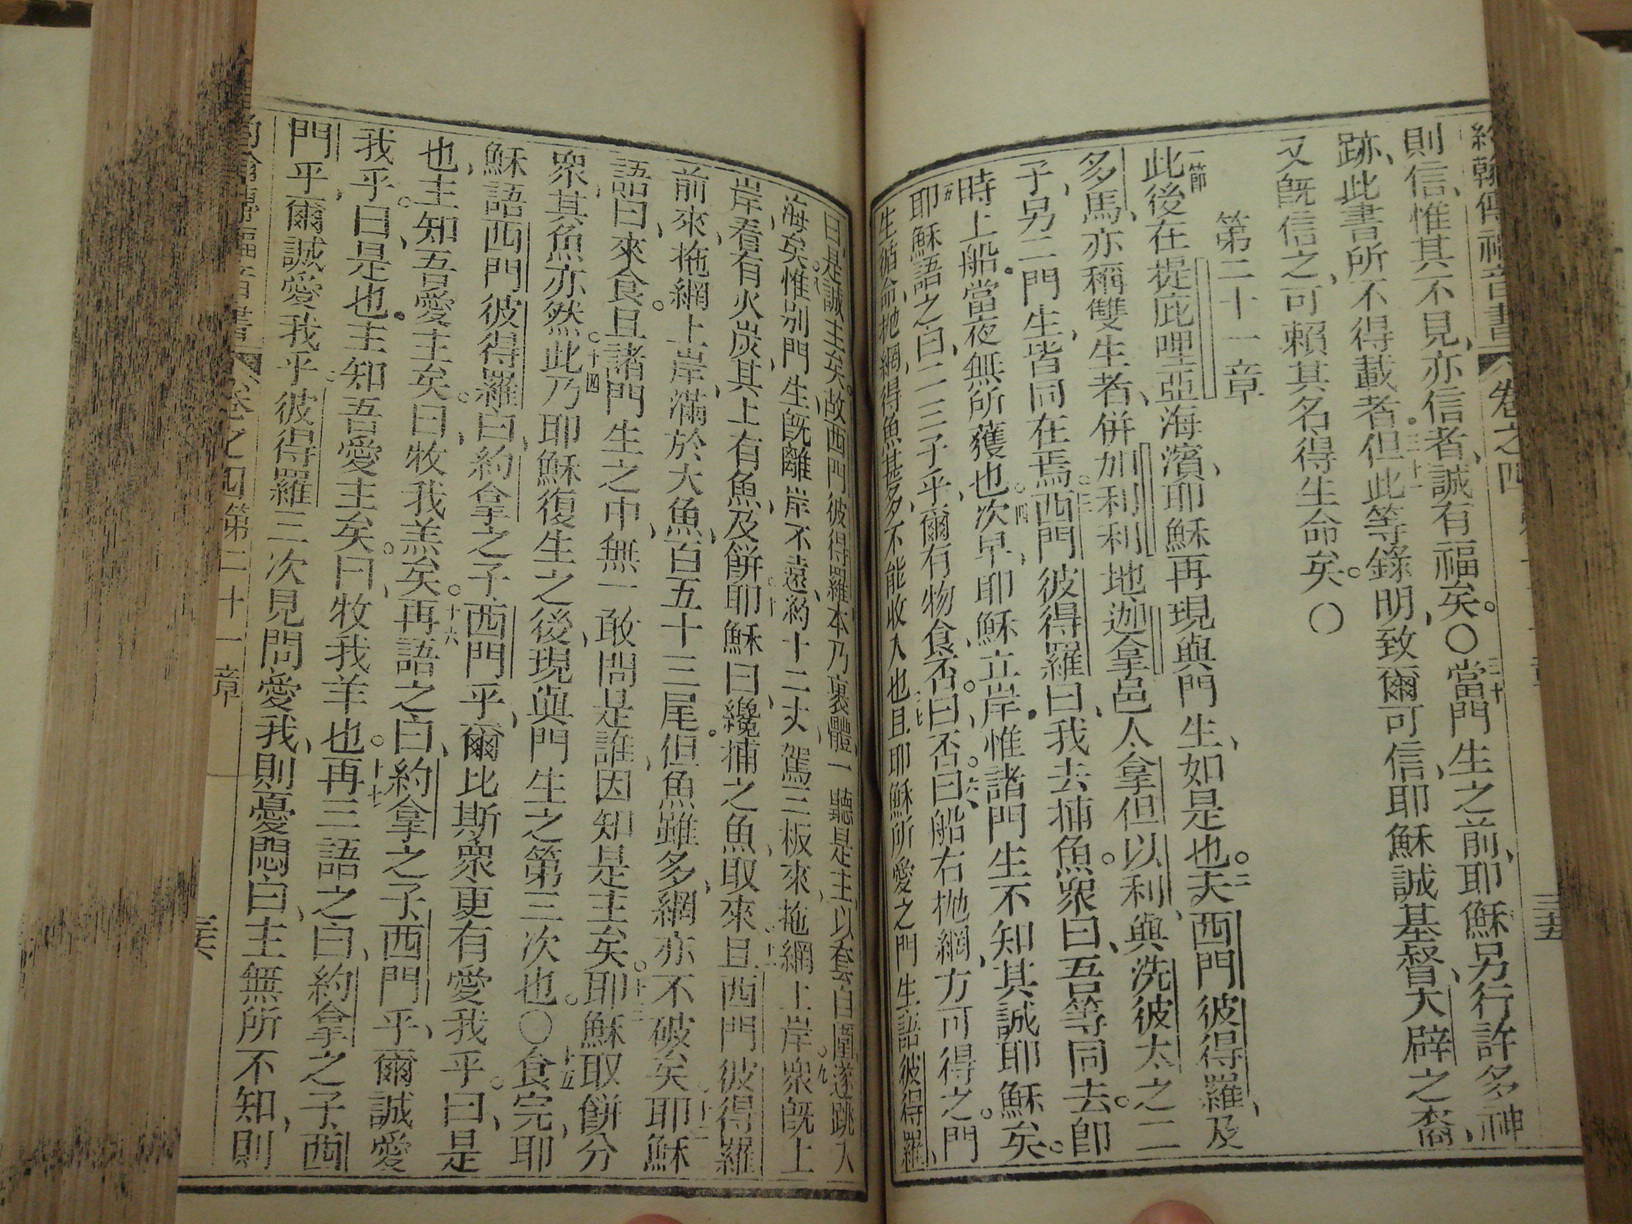 約翰傳福音書 卷之四
則信、惟其不見、亦信者、誠有福矣。〇當門生之前、耶穌另行許多神
跡、此書所不得載者、但此等錄明、致爾可信、耶穌誠基督、大辟之裔、
又既信之、可賴其名得生命矣。〇
第二十一章
一節 此後在提庇哩亞海濱、耶穌再現與門生、如是也。二夫西門彼得羅、及
多馬、亦稱雙生者、併加利利地迦拿邑人拿但以利、與洗彼太之二
子、另二門生、皆同在焉。三西門彼得羅曰、我去捕魚。眾曰、吾等同去。即
時上船。當夜無所獲也。四次早、耶穌立岸。惟諸門生不知其誠耶穌矣。
五耶穌語之曰、二三子乎、爾有物食否。曰、否。六曰、船右拋網、方可得之。門
生循命拋網、得魚甚多、不能收入也。七且耶穌所愛之門生語彼得羅、
曰、是誠主矣。故西門彼得羅本乃裏體、一聽是主、以套自圍、遂跳入
海矣。惟別門生既離岸不遠、約十二丈、駕三板來、拖網上岸。九眾既上
岸、看有火炭、其上有魚、及餅。十耶穌曰、纔捕之魚、取來。十一且西門彼得羅
前來、拖網上岸、滿於大魚、百五十三尾。但魚雖多、網亦不破矣。十二耶穌
語曰、來食。且諸門生之中、無一敢問是誰、因知是主矣。十三耶穌取餅分
眾、其魚亦然。十四此乃耶穌復生之後、現與門生之第三次也。〇十五食完、耶
穌語西門彼得羅曰、約拿之子、西門乎、爾比斯眾更有愛我乎。曰、是
也、主知吾愛主矣。曰、牧我羔矣。十六再語之曰、約拿之子、西門乎、爾誠愛
我乎。曰、是也。主知吾愛主矣。曰、牧我羊也。十七再三語之曰、約拿之子、西
門乎、爾誠愛我乎。彼得羅三次見問愛我、則憂悶曰、主無所不知、則
卷之四第二十一章